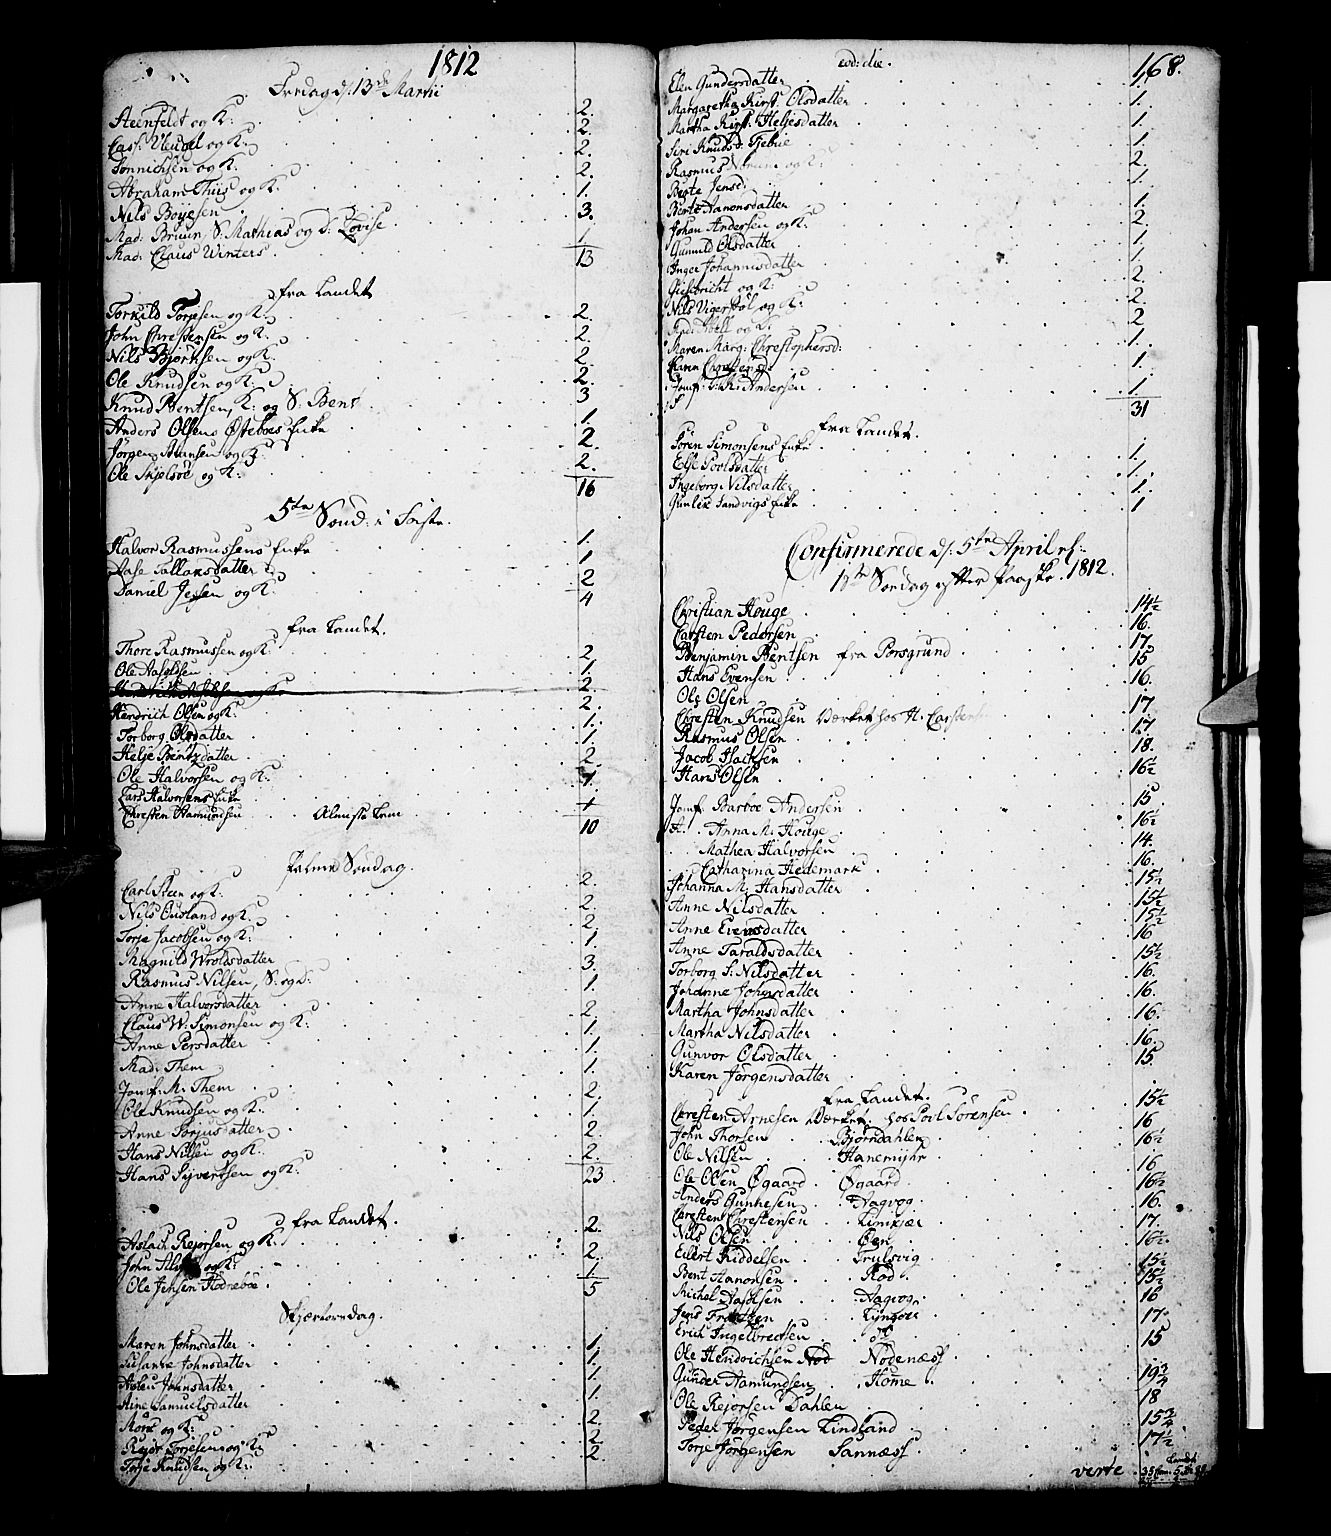 1812
Fredag d: 13de Martii
Steenfeldt og K: 2.
Cass: Wengel og K: 2.
Jonnichsen og K. 2.
Abraham Thiis og K: 2.
Nils Boyesen 1.
Mad: Bruun, S. Mathias og D: Lovise 3.
Mad: Claus Winters 1
13
fra Landet
Torkild Torjesen og K. 2.
John Christensen og K: 2.
Nils Bjørnsen og K: 2.
Ole Knudsen og K: 2.
Knud Bentsen, K: og S. Bent 3
Anders Olsens Østeboes Enke 1.
Jörgen Hansen og K 2.
Ole Skjelsöe og K: 2.
16
5te Sönd: i Faste.
Halvor Rasmussens Enke 1.
Aase Tallaksdatter 1
Daniel Jessen og K: 2
4
fra Landet.
Thore Rasmussen og K: 2
Ole Aaseldsen 1.
2
Hendrich Olsen og K: 2.
Torborg Olsdatter 1.
Helje Bentzdatter 1.
Ole Halvorsen og K: 2
Lars Halvorsens Enke 1.
Christen Aamundsen Almisse Lem 1
10
Palme Söndag.
Carl Steen og K: 2.
Nils Ousland og K: 2.
Torje Jacobsen og K: 2
Magnild Wroldsdatter 1.
Rasmus Nilsen, S. og D: 3.
Anne Halvorsdatter 1.
Claus W. Simonsen og K: 2.
Anne Persdatter 1.
Mad: Them 1.
Jomf: M. Them 1.
Ole Knudsen og K: 2.
Anne Torjusdatter 1.
Hans Nilsen og K: 2.
Hans Sivertsen og K: 2.
23
fra Landet.
Aslach Rejorsen og K: 2.
John og K: 2.
Ole Jensen Hodneböe 1.
5
Skjærtorsdag.
Maren Johnsdatter 1.
Susanne Johnsdatter 1.
Aslau Johnsdatter 1
Aine Samuelsdatter 1.
Mörk og K: 2.
Rejor Torjesen og K: 2.
Torje Knudsen og K: 2
eod: die. 168.
Elen Gundersdatter 1.
Margaretha Kirst. Olsdatter 1.
Martha Kirst. Heljesdatter 1.
Siri Knudsd: Fjebue 1.
Rasmus og K: 2.
Berte Jensd: 1.
Berte Aanonsdatter 1.
Johan Andersen og K: 2.
Gunnild Olsdatter 1.
Inger Johannisdatter 1.
Giesbricht og K: 2.
Nils Vigerstöl og K: 2
Mad: Holl og D: 2
Maren Marg: Christophersd: 1.
Karen Christensd: 1.
Jomf: Andersen 1.
31
fra Landet.
Sören Simonsens Enke 1.
Else Povlsdatter 1.
Ingeborg Nilsdatter 1.
Gunlix Sandvigs Enke 1
Confirmerede d: 5te April
1ste Söndag efter Paaske. 1812.
Christian Houge 14½
Carsten Pedersen 16.
Benjamin Bentsen fra Porsgrund 17.
Hans Evensen 15
Ole Olsen 16.
Christen Knudsen Værket hos H. Carstens 17
Rasmus Olsen 17
Jacob Isacksen 18.
Hans Olsen 16½
Jomf. Barboe Andersen 15
Anna M. Houge 16½
Mathea Halvorsen 14.
Catharina Hedemark 16.
Johanna M. Hansdatter 15½
Anne Nilsdatter 15½
Anne Evensdatter 15½
Anne Taraldsdatter 16
Torborg S: Nilsdatter 15½
Johanne Johnsdatter 16.
Martha Johnsdatter 16.
Martha Nilsdatter 16.
Gunvor Olsdatter 16.
Karen Jörgensdatter 15.
fra Landet.
Christen Arnesen Værket hos Povl Sörensen 15½
John Thorsen Björndahlen 16
Ole Nilsen Hanemyhr 16½
Ole Olsen Øgaard Øgaard 16
Anders Gunnesen Aagvog 16½
Christen Christensen Limkjær 16.
Nils Olsen Öen 17.
Eilert Kiddelsen Trulsvig 16½
Bent Aanonsen Röd 15½
Michel Aasolsen Aagvog 15½
Jens Lyngöer 16
Erich Ingelbretsen 17.
Ole Hendrichsen Nödenæss 15
Gunder Aamundsen Home 19¾
Ole Rejorsen Dahlen 18
Peder Jörgensen Lindland 15¾
Torje Jörgensen Sannæss 17½
verte